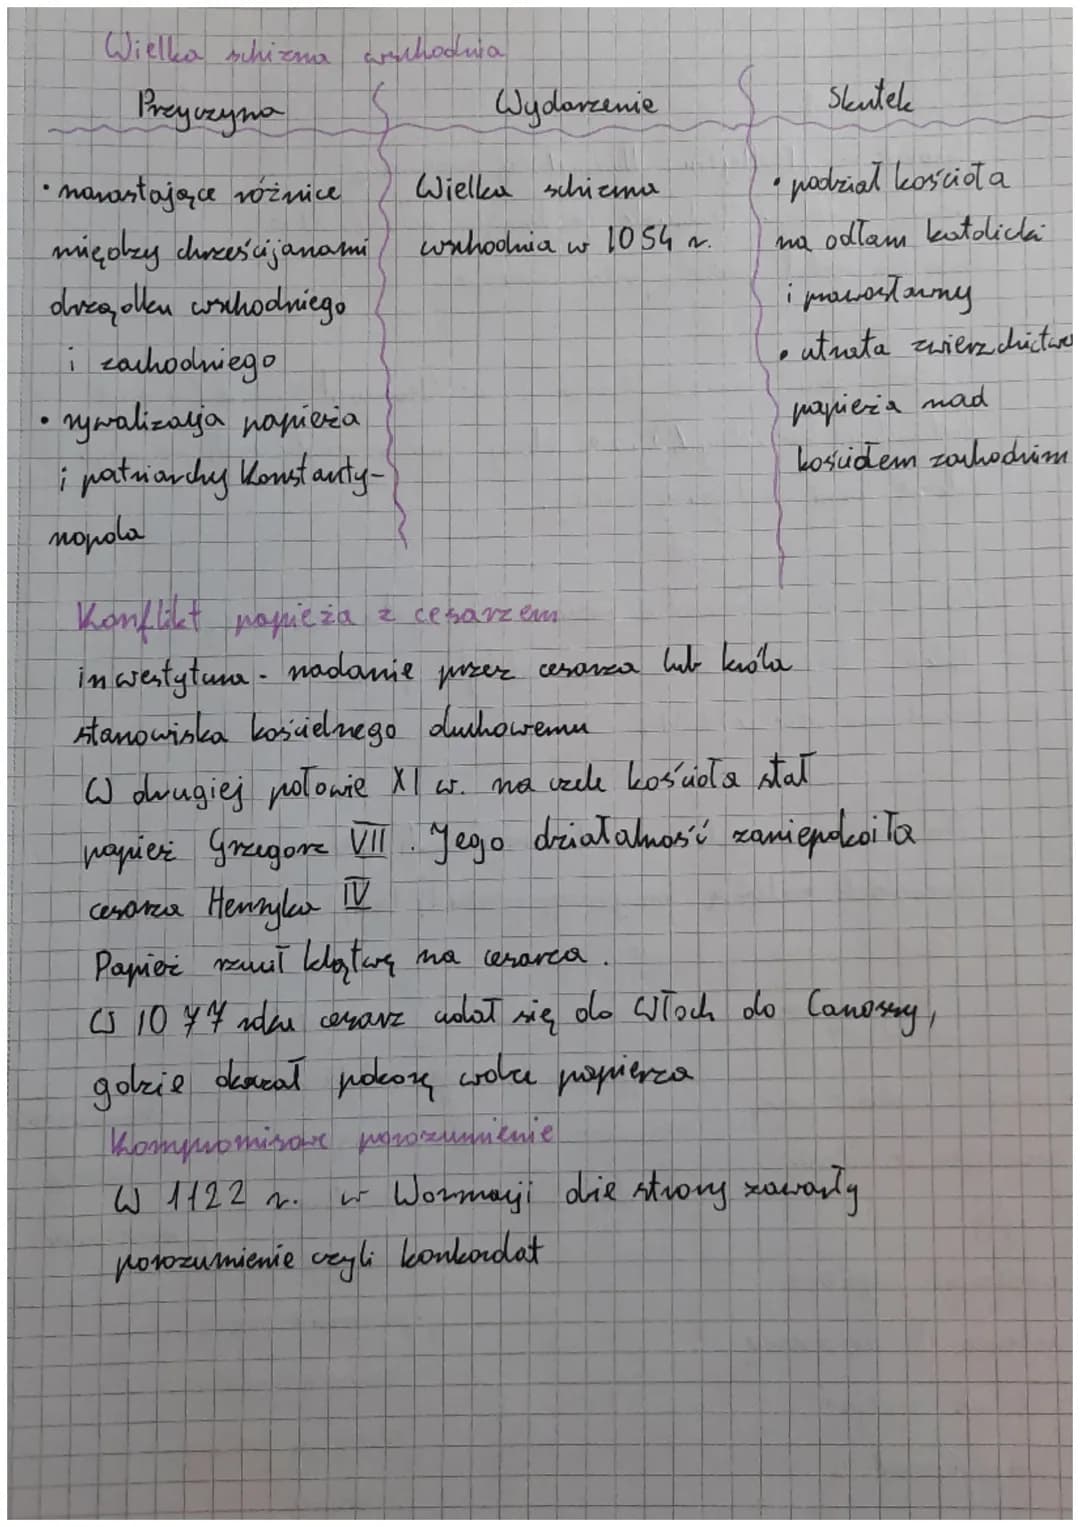 Wielka schizma wschodnia
Przyczyna Wydarzenie Skutek
• narastające różnice
między chrześcijanami
obrządku wschodniego
i zachodniego
• rywalizacja papieża
i patriarchy Konstanty-
nopola
Wielka schizma
wschodnia w 1054 r.
• podział kościoła
na odłam katolicki
i prawosławny
• utrata zwierzchictwa
papieża nad
kościołem zachodnim
Konflikt papieża z cesarzem
inwestytura - nadanie przez cesarza lub króla
stanowiska kościelnego duchowemu
W drugiej połowie XI w. na czele kościoła stał
papież Grzegorz VII. Jego działalność zaniepokoiła
cesarza Henryka IV
Papież rzucił klątwę na cesarza.
W 1077 roku cesarz udał się do Włoch do Canossy,
gdzie okazał pokorę wobec papierza
Kompromisowe porozumienie
W 1122 r. w Wormacji die strony zawarły
porozumienie czyli konkordat